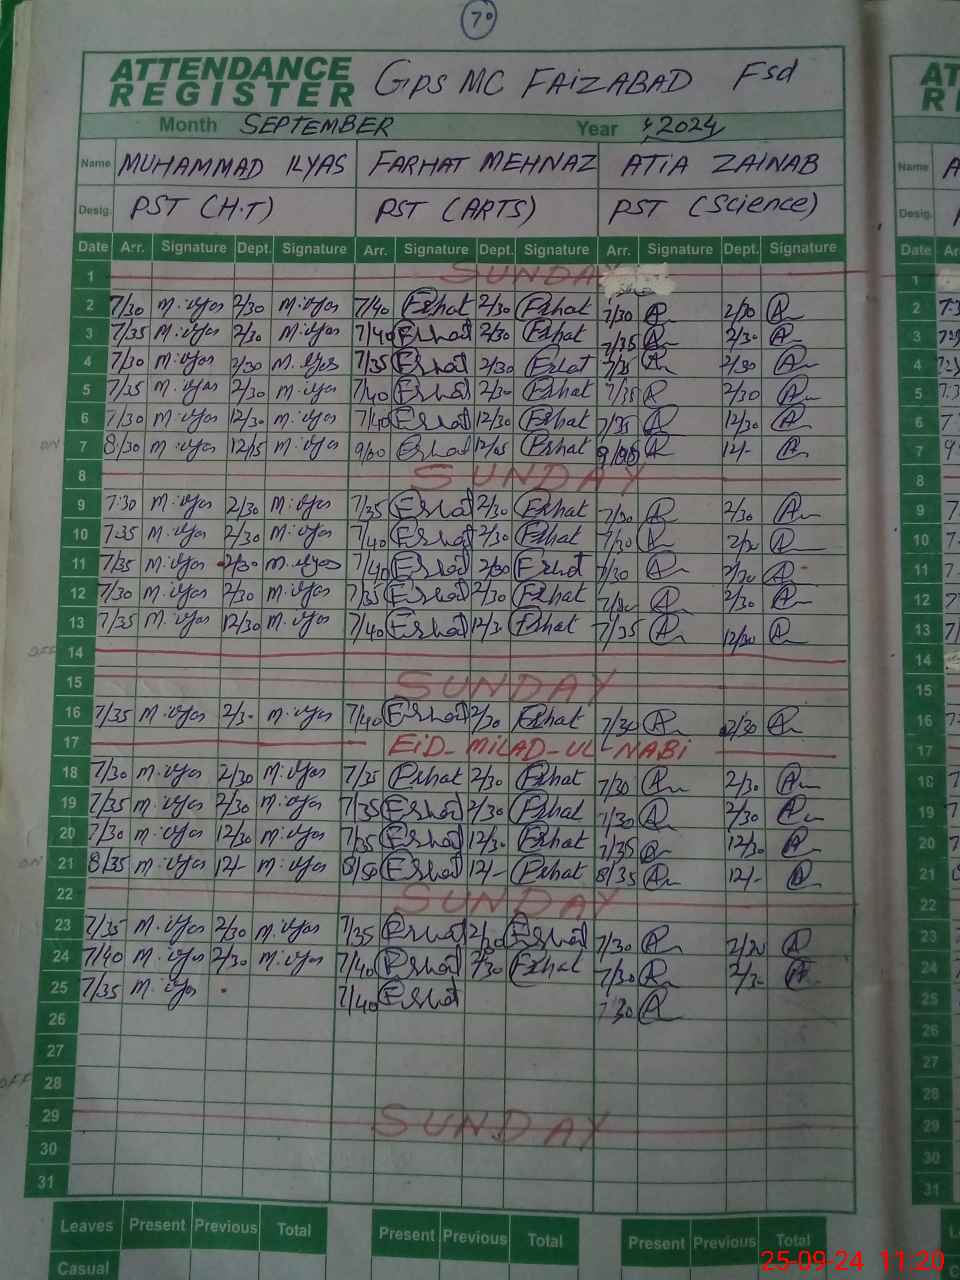 70
ATTENDANCE
REGISTER
GPS MC FAIZABAD Fsd
Month SEPTEMBER Year 2024
Name MUHAMMAD ILYAS FARHAT MEHNAZ ATIA ZAINAB Name
Desig. PST (H.T) PST (ARTS) PST (Science) Desig.
Date Arr. Signature Dept. Signature Arr. Signature Dept. Signature Arr. Signature Dept. Signature Date
1 SUNDAY 1
2 7/30 M.ilyas 2/30 M.ilyas 7/40 Farhat 2/30 Farhat 7/30 2/30 2
3 7/35 M.ilyas 2/30 M.ilyas 7/40 Farhat 2/30 Farhat 7/35 2/30 3
4 7/30 M.ilyas 2/30 M.ilyas 7/35 Farhat 2/30 Farhat 2/30 4
5 7/35 M.ilyas 2/30 M.ilyas 7/40 Farhat 2/30 Farhat 7/35 2/30 5
6 7/30 M.ilyas 12/30 M.ilyas 7/40 Farhat 12/30 Farhat 7/35 12/30 6
7 8/30 M.ilyas 12/15 M.ilyas 9/00 Farhat Farhat 12/- 7
8 SUNDAY 8
9 7:30 M.ilyas 2/30 M.ilyas 7/35 Farhat 2/30 Farhat 7/30 2/30 9
10 7:35 M.ilyas 2/30 M.ilyas 7/40 Farhat 2/30 Farhat 7/30 2/30 10
11 7/35 M.ilyas 2/30 M.ilyas 7/40 Farhat 2/30 Farhat 7/30 2/30 11
12 7/30 M.ilyas 2/30 M.ilyas 7/35 Farhat 2/30 Farhat 7/30 2/30 12
13 7/35 M.ilyas 12/30 M.ilyas 7/40 Farhat 12/30 Farhat 7/35 12/30 13
OFF 14 14
15 SUNDAY 15
16 7/35 M.ilyas 2/30 M.ilyas 7/40 Farhat 2/30 Farhat 7/30 2/30 16
17 EID-MILAD-UL-NABI 17
18 7/30 M.ilyas 2/30 M.ilyas 7/35 Farhat 2/30 Farhat 7/30 2/30 18
19 7/35 M.ilyas 2/30 M.ilyas 7/35 Farhat 2/30 Farhat 7/30 2/30 19
20 7/30 M.ilyas 12/30 M.ilyas 7/35 Farhat 12/30 Farhat 7/35 12/30 20
21 8/35 M.ilyas 12/- M.ilyas 8/50 Farhat 12/- Farhat 8/35 12/- 21
22 SUNDAY 22
23 7/35 M.ilyas 2/30 M.ilyas 7/35 Farhat 2/30 Farhat 7/30 2/30 23
24 7/40 M.ilyas 2/30 M.ilyas 7/40 Farhat 2/30 Farhat 7/30 2/30 24
25 7/35 M.ilyas 7/40 Farhat 7/30 25
26 26
27 27
OFF 28 28
29 SUNDAY 29
30 30
31 31
Leaves Present Previous Total Present Previous Total Present Previous Total
Casual
25-09-24 11:20